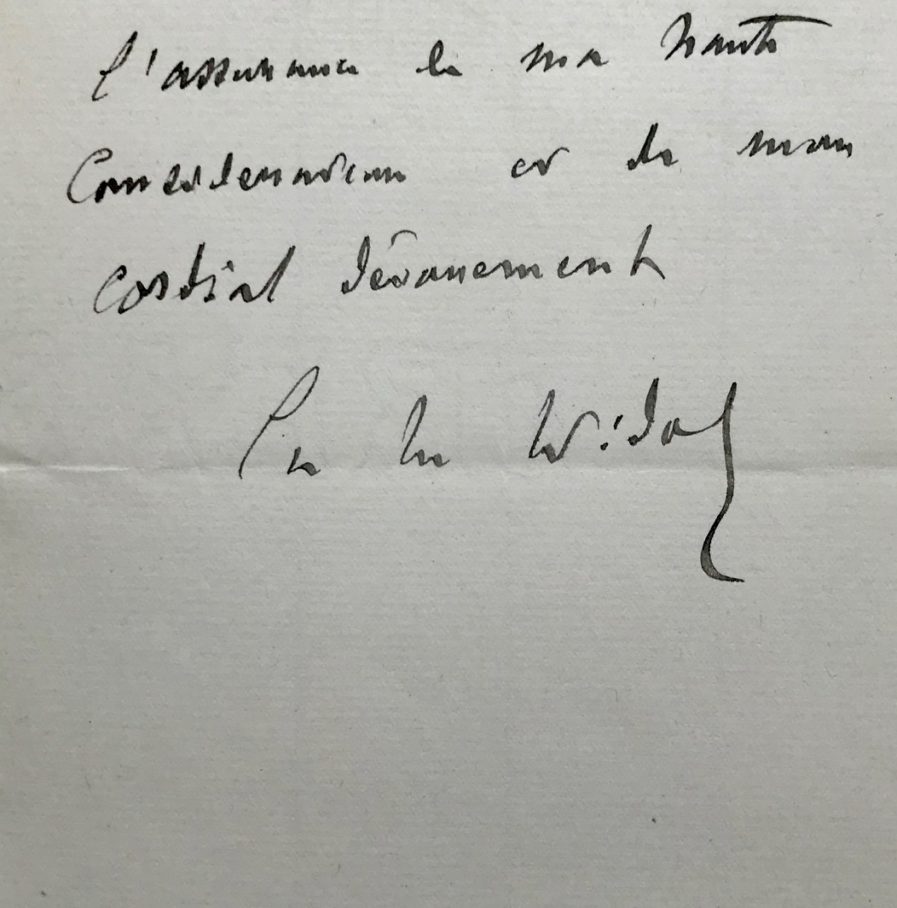 l'assurance de ma haute
Considération et de mon
cordial dévouement
Widal